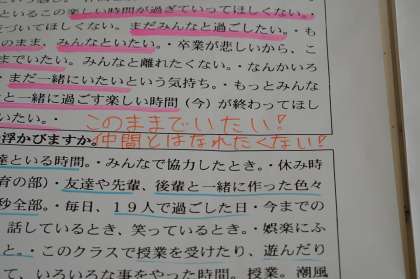 といるこの楽しい時間が過ぎていってほしくない。
づいてほしくない。まだみんなと過ごしたい。・も
のまま、みんなといたい。・卒業が悲しいから、こ
までいたい。みんなと離れたくない。・なんかいろ
・まだ一緒にいたいという気持ち。・もっとみんな
と一緒に過ごす楽しい時間（今）が終わってほし
いたい。・
このままでいたい！
浮かびますか。仲間とはなれたくない！
達といる時間。・みんなで協力したとき。・休み時
育の部）・友達や先輩、後輩と一緒に作った色々
秒全部。・毎日、１９人で過ごした日・今までの
話しているとき、笑っているとき。・娯楽にふ
と。・このクラスで授業を受けたり、遊んだり
て、いろいろな事をやった時間。授業。潮風